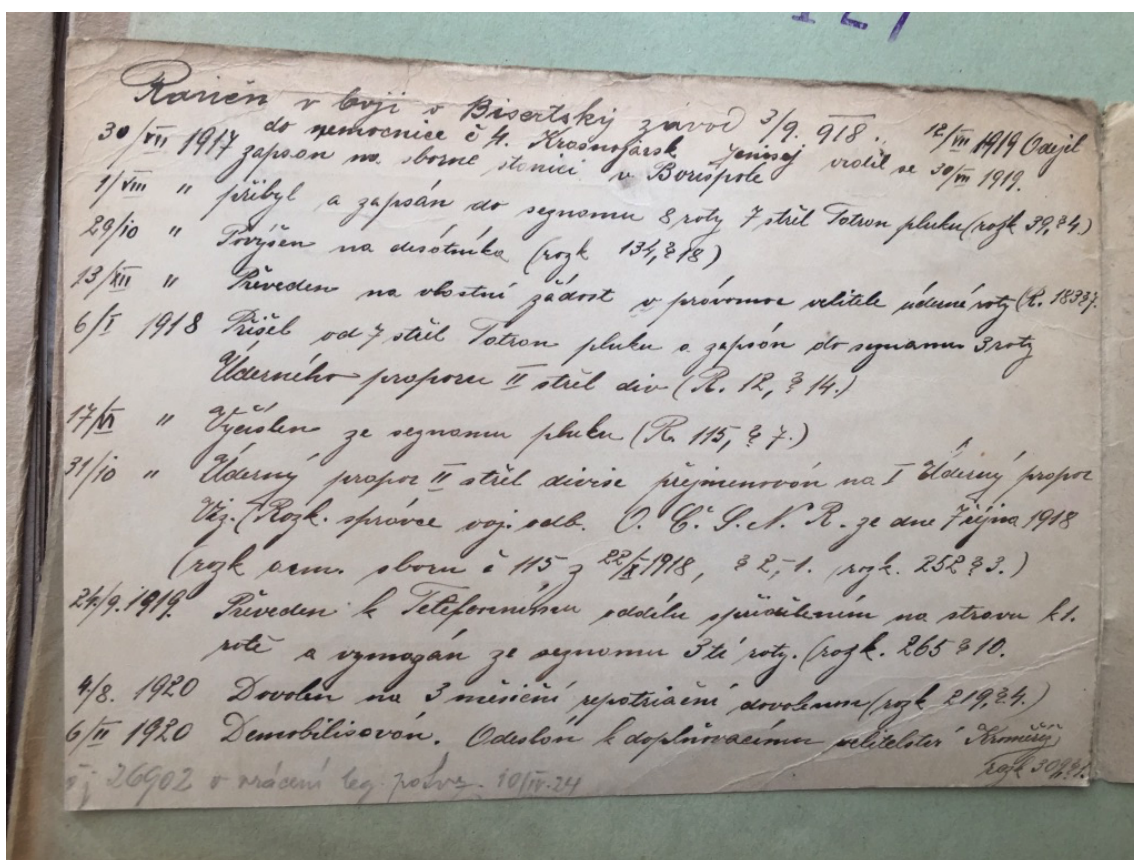 127
Raněn v boji o Bisertský závod 3/9. 918. 12/VII 1919 Odejel
do nemocnice č 4. Krasnojarsk Jenisej vrátil se 30/VII 1919.
30/VII 1917 zapsán na sborné stanici v Borispole
1/VIII " přibyl a zapsán do seznamu 8 roty 7 střel Tatran pluku (rozk 39, § 4)
29/10 " Povýšen na desátníka (rozk 134, § 18)
13/XII " Převeden na vlastní žádost v právomoc velitele úderné roty (R. 183 § 7.
6/I 1918 Přišel od 7 střel Tatran pluku a zapsán do seznamu 3 roty
Úderného praporu II střel div (R. 12, § 14.)
17/VI " Vyčíslen ze seznamu pluku (R. 115, § 7.)
31/10 " Úderný prapor II střel divise přejmenován na I Úderný prapor
Viz. (Rozk. správce voj. odb. O. Č. S. N. R. ze dne 7 října 1918
(rozk sboru č 115 z 22/X 1918, § 2, 1. rozk. 252 § 3.)
24/9. 1919. Převeden k Telefonnímu oddílu s přidělením na stravu k 1.
rotě a vymazán ze seznamu 3 tí roty. (rozk. 265 § 10.
4/8. 1920 Dovolen na 3 měsíční repatriační dovolenou (rozk 219, § 4.)
6/II 1920 Demobilisován. Odeslán k doplňovacímu velitelství Kroměříž
rozk 309 § 1.
čj 26902 o vrácení leg. potvrz. 10/IV-24